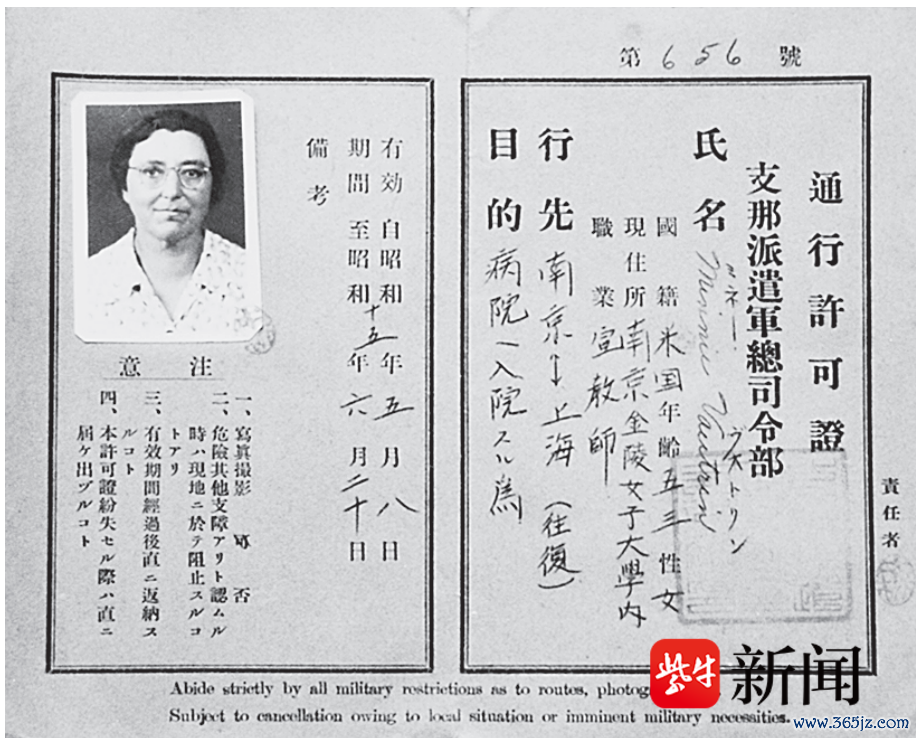 第 656 號
通行許可證
支那派遣軍總司令部
氏名 Minnie Vautrin
ミネー・ヴオトリン
國籍 米国 年齡 五三 性 女
現住所 南京金陵女子大學内
職業 宣教師
行先 南京↔上海 (往復)
目的 病院ヘ入院スル為
責任者
有効期間 自昭和十五年五月八日
至昭和 年六月二十日
備考
注意
一、寫眞撮影 可 否
二、危險其他支障アリト認ムル
時ハ現地ニ於テ阻止スルコ
トアリ
三、有效期間經過後直ニ返納ス
ルコト
四、本許可證紛失セル際ハ直ニ
届ケ出ヅルコト
Abide strictly by all military restrictions as to routes,
Subject to cancellation owing to local situation or imminent military necessities.
紫牛新闻
www.365jz.com